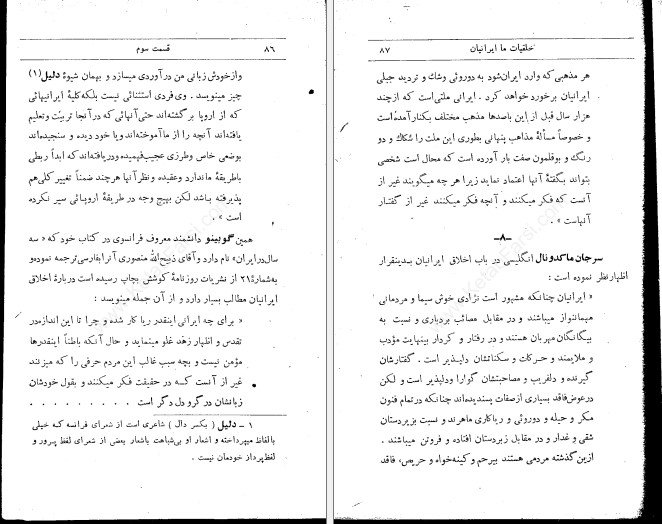 ۸۶ قسمت سوم
وازخودش زبانی من درآوردی میسازد و بهمان شیوهٔ دلیل (۱)
چیز مینویسد . وی فردی استثنائی نیست بلکه کلیهٔ ایرانیهائی
که از اروپا برگشته‌اند حتی آنهائی که در آنجا تربیت وتعلیم
یافته‌اند آنچه را از ما آموخته‌اند ویا خود دیده و سنجیده‌اند
بوضعی خاص وطرزی عجیب فهمیده ودریافته‌اند که ابداً ربطی
باطریقهٔ ما ندارد وعقیده ونظر آنها هرچند ضمناً تغییر کلی هم
پذیرفته باشد لکن بهیچ وجه در طریقهٔ اروپائی سیر نکرده
است » .
همین گوبینو دانشمند معروف فرانسوی در کتاب خود که « سه
سال درایران» نام دارد وآقای ذبیح‌الله منصوری آنرا بفارسی ترجمه نموده و
به‌شمارهٔ ۲۱ از نشریات روزنامهٔ کوشش بچاپ رسیده است دربارهٔ اخلاق
ایرانیان مطالب بسیار دارد و از آن جمله مینویسد :
« برای چه ایرانی اینقدر ریا کار شده و چرا تا این اندازه در
تقدس و اظهار زهد غلو مینماید و حال آنکه باطناً اینقدرها
مؤمن نیست و بچه سبب غالب این مردم حرفی را که میزنند
غیر از آنست که در حقیقت فکر میکنند و بقول خودشان
زبانشان در گرو دل دگر است . . . . . . . . .
۱ – دلیل ( بکسر دال ) شاعری است از شعرای فرانسه که خیلی
بالفاظ میپرداخته و اشعار او بی‌شباهت باشعار بعضی از شعرای لفظ پرور و
لفظ پرداز خودمان نیست .
خلقیات ما ایرانیان ۸۷
هر مذهبی که وارد ایران شود به دوروئی وشك و تردید جبلی
ایرانیان برخورد خواهد کرد . ایرانی ملتی است که ازچند
هزار سال قبل از این باصدها مذهب مختلف بکنار آمده است
و خصوصاً مسألهٔ مذاهب پنهانی بطوری این ملت را شکاك و دو
رنگ و بوقلمون صفت بار آورده است که محال است شخصی
بتواند بگفتهٔ آنها اعتماد نماید زیرا هر چه میگویند غیر از
آنست که فکر میکنند و آنچه فکر میکنند غیر از گفتار
آنهاست » .
–۸–
سرجان ماکدونالد انگلیسی در باب اخلاق ایرانیان بدینقرار
اظهارنظر نموده است :
« ایرانیان چنانکه مشهور است نژادی خوش سیما و مردمانی
میهماننواز میباشند و در مقابل مصائب بردباری و نسبت به
بیگانگان مهربان هستند و در رفتار و کردار بینهایت مؤدب
و ملایمند و حرکات و سکناتشان دلپذیر است . گفتارشان
گیرنده و دلفریب و مصاحبتشان گوارا ودلپذیر است و لکن
درعوض فاقد بسیاری ازصفات پسندیده‌اند چنانکه در تمام فنون
مکر و حیله و دوروئی و ریاکاری ماهرند و نسبت بزیردستان
شقی و غدار و در مقابل زبردستان افتاده و فروتن میباشند .
ازین گذشته مردمی هستند بیرحم و کینه‌خواه و حریص، فاقد